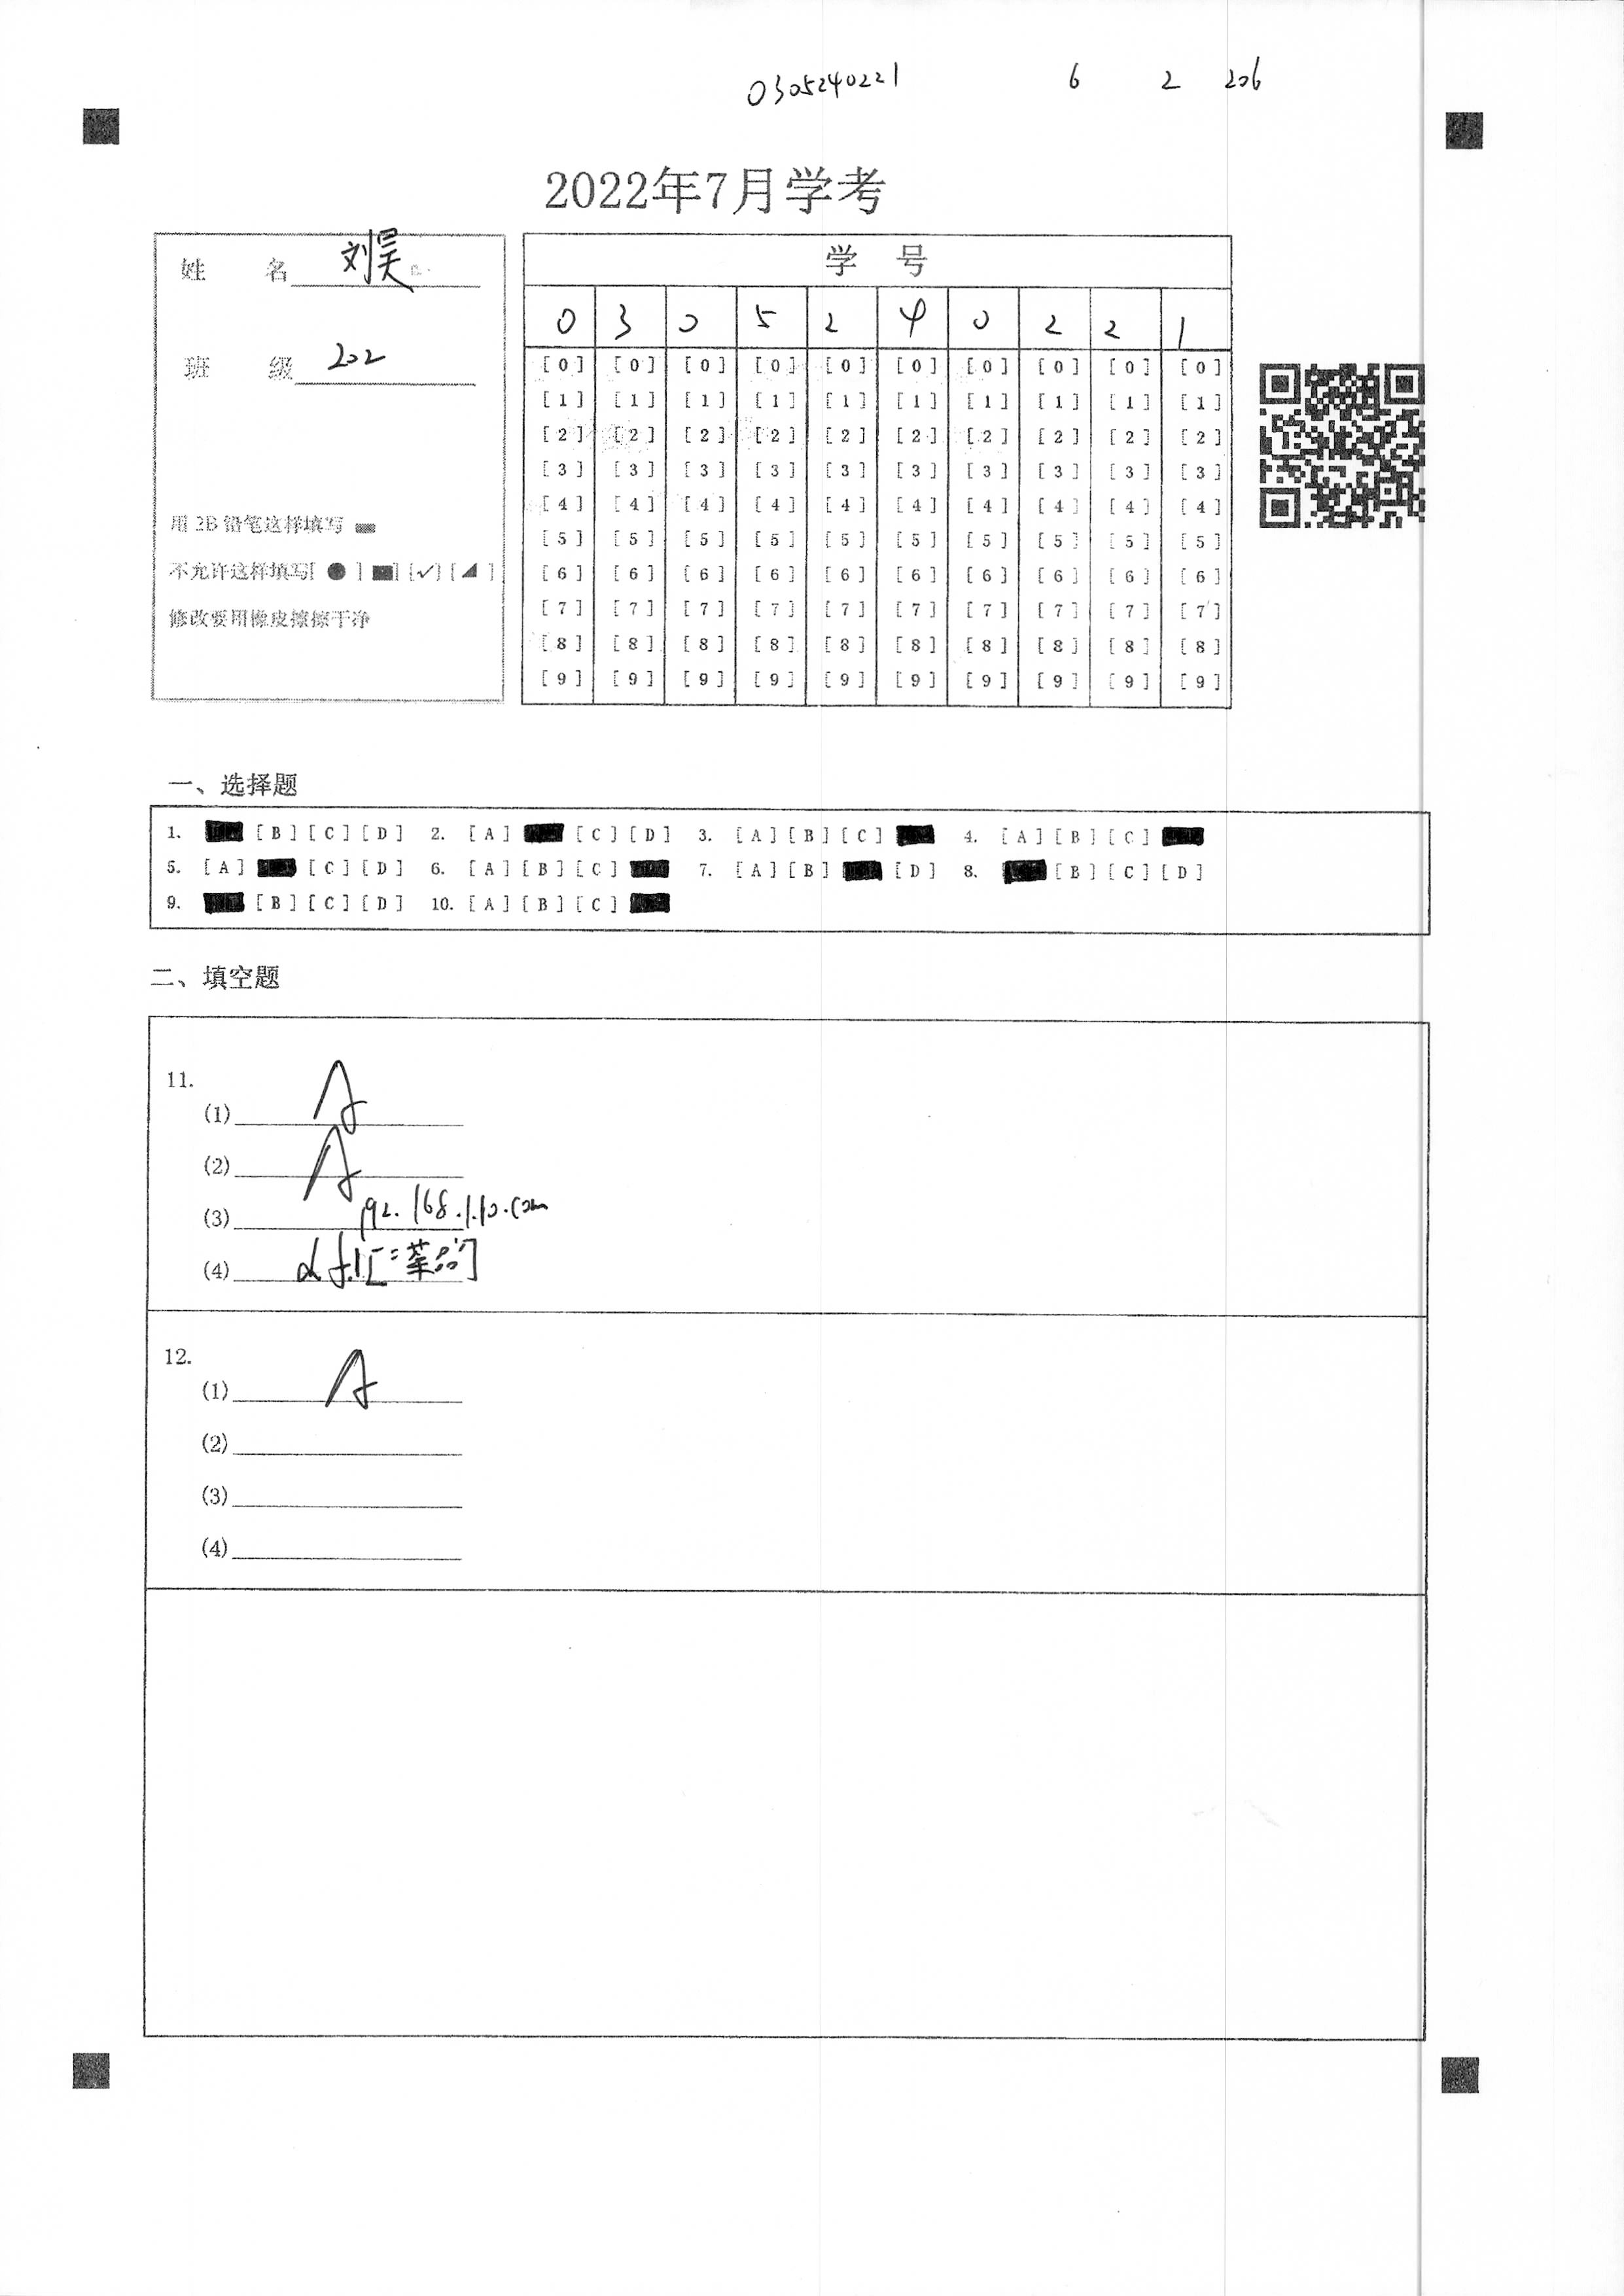 0305240221 6 2 206
2022年7月学考
姓 名 刘昊
班 级 202
用 2B 铅笔这样填写
不允许这样填写[ ● ] [■] [✓] [◢ ]
修改要用橡皮擦擦干净
学 号
0 3 0 5 2 4 0 2 2 1
[0] [0] [0] [0] [0] [0] [0] [0] [0] [0]
[1] [1] [1] [1] [1] [1] [1] [1] [1] [1]
[2] [2] [2] [2] [2] [2] [2] [2] [2] [2]
[3] [3] [3] [3] [3] [3] [3] [3] [3] [3]
[4] [4] [4] [4] [4] [4] [4] [4] [4] [4]
[5] [5] [5] [5] [5] [5] [5] [5] [5] [5]
[6] [6] [6] [6] [6] [6] [6] [6] [6] [6]
[7] [7] [7] [7] [7] [7] [7] [7] [7] [7]
[8] [8] [8] [8] [8] [8] [8] [8] [8] [8]
[9] [9] [9] [9] [9] [9] [9] [9] [9] [9]
一、选择题
1. [B] [C] [D] 2. [A] [C] [D] 3. [A] [B] [C] 4. [A] [B] [C]
5. [A] [C] [D] 6. [A] [B] [C] 7. [A] [B] [D] 8. [B] [C] [D]
9. [B] [C] [D] 10. [A] [B] [C]
二、填空题
11.
(1) A
(2) A
(3) 192.168.1.10.com
(4)
12.
(1) A
(2)
(3)
(4)